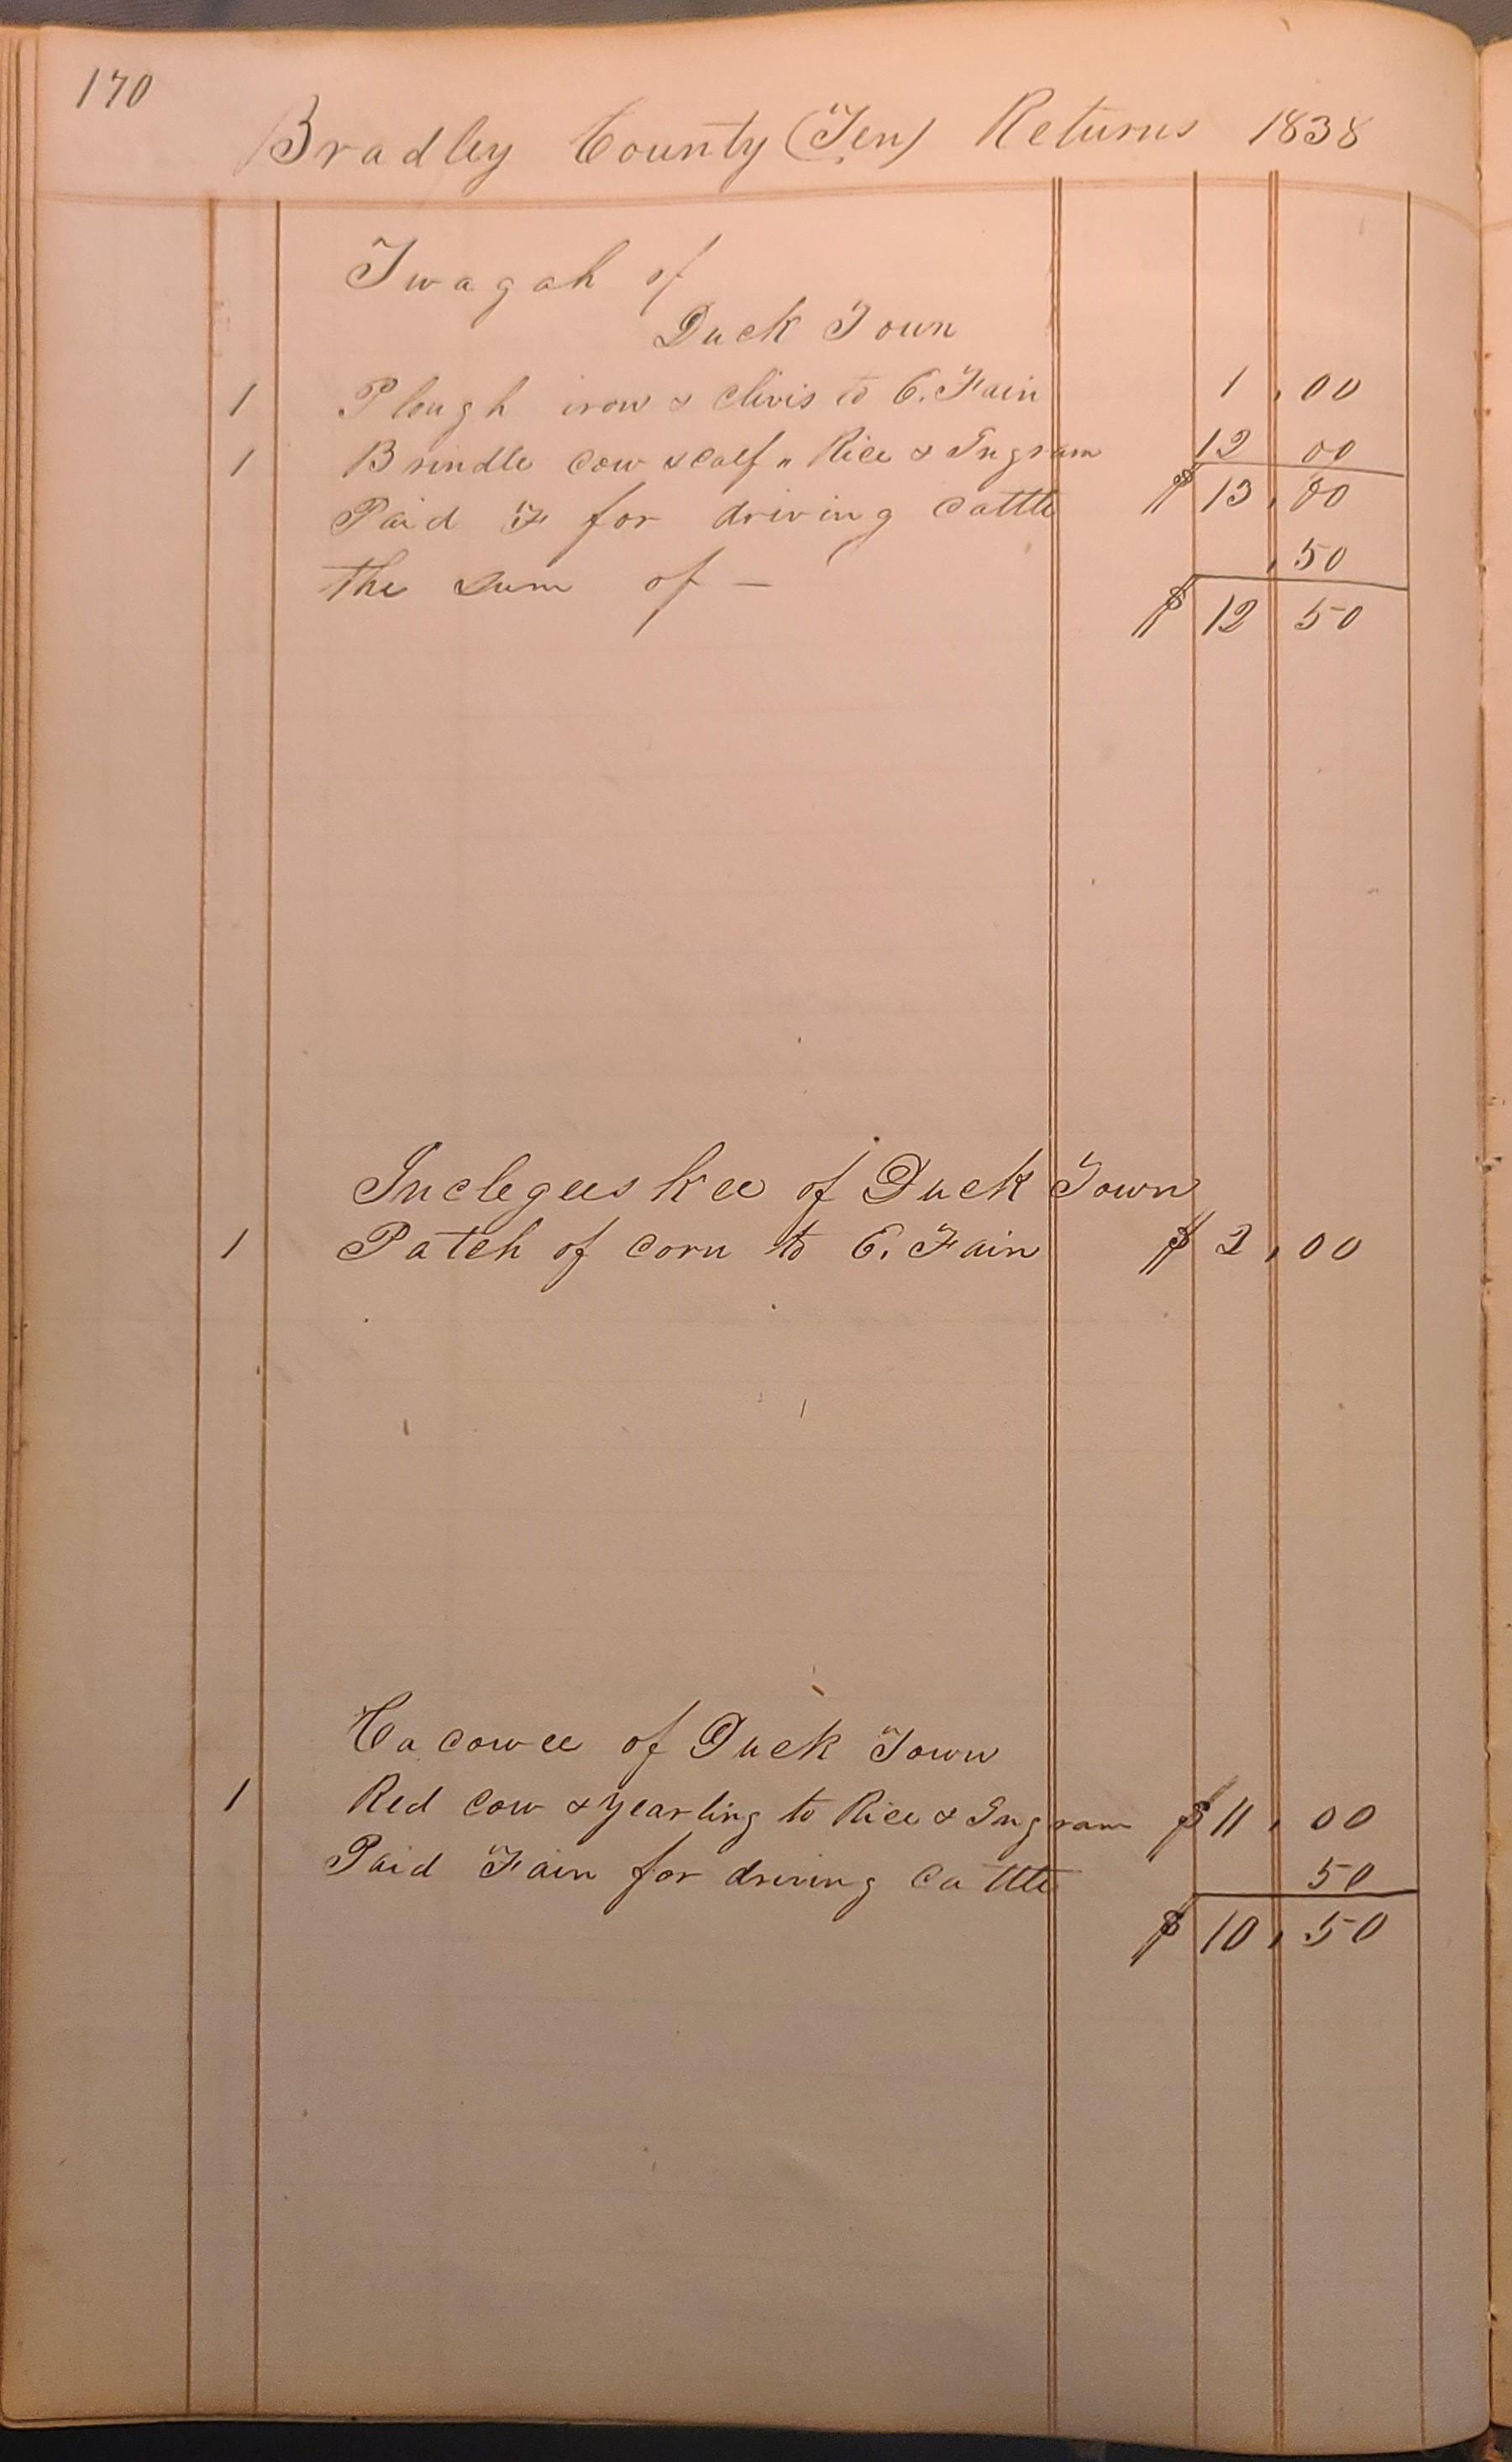 170
Bradley County (Ten) Returns 1838
Twagah of
Duck Town
1 Plough iron & clivis to E. Fain 1,00
1 Brindle Cow & Calf " Rice & Ingram 12 00
$13,00
Paid F for driving Cattle
the sum of — ,50
$12 50
Inclegees kee of Duck Town
1 Patch of Corn to E. Fain $2,00
Cacowee of Duck Town
1 Red Cow & yearling to Rice & Ingram $11,00
Paid Fain for driving Cattle 50
$10,50